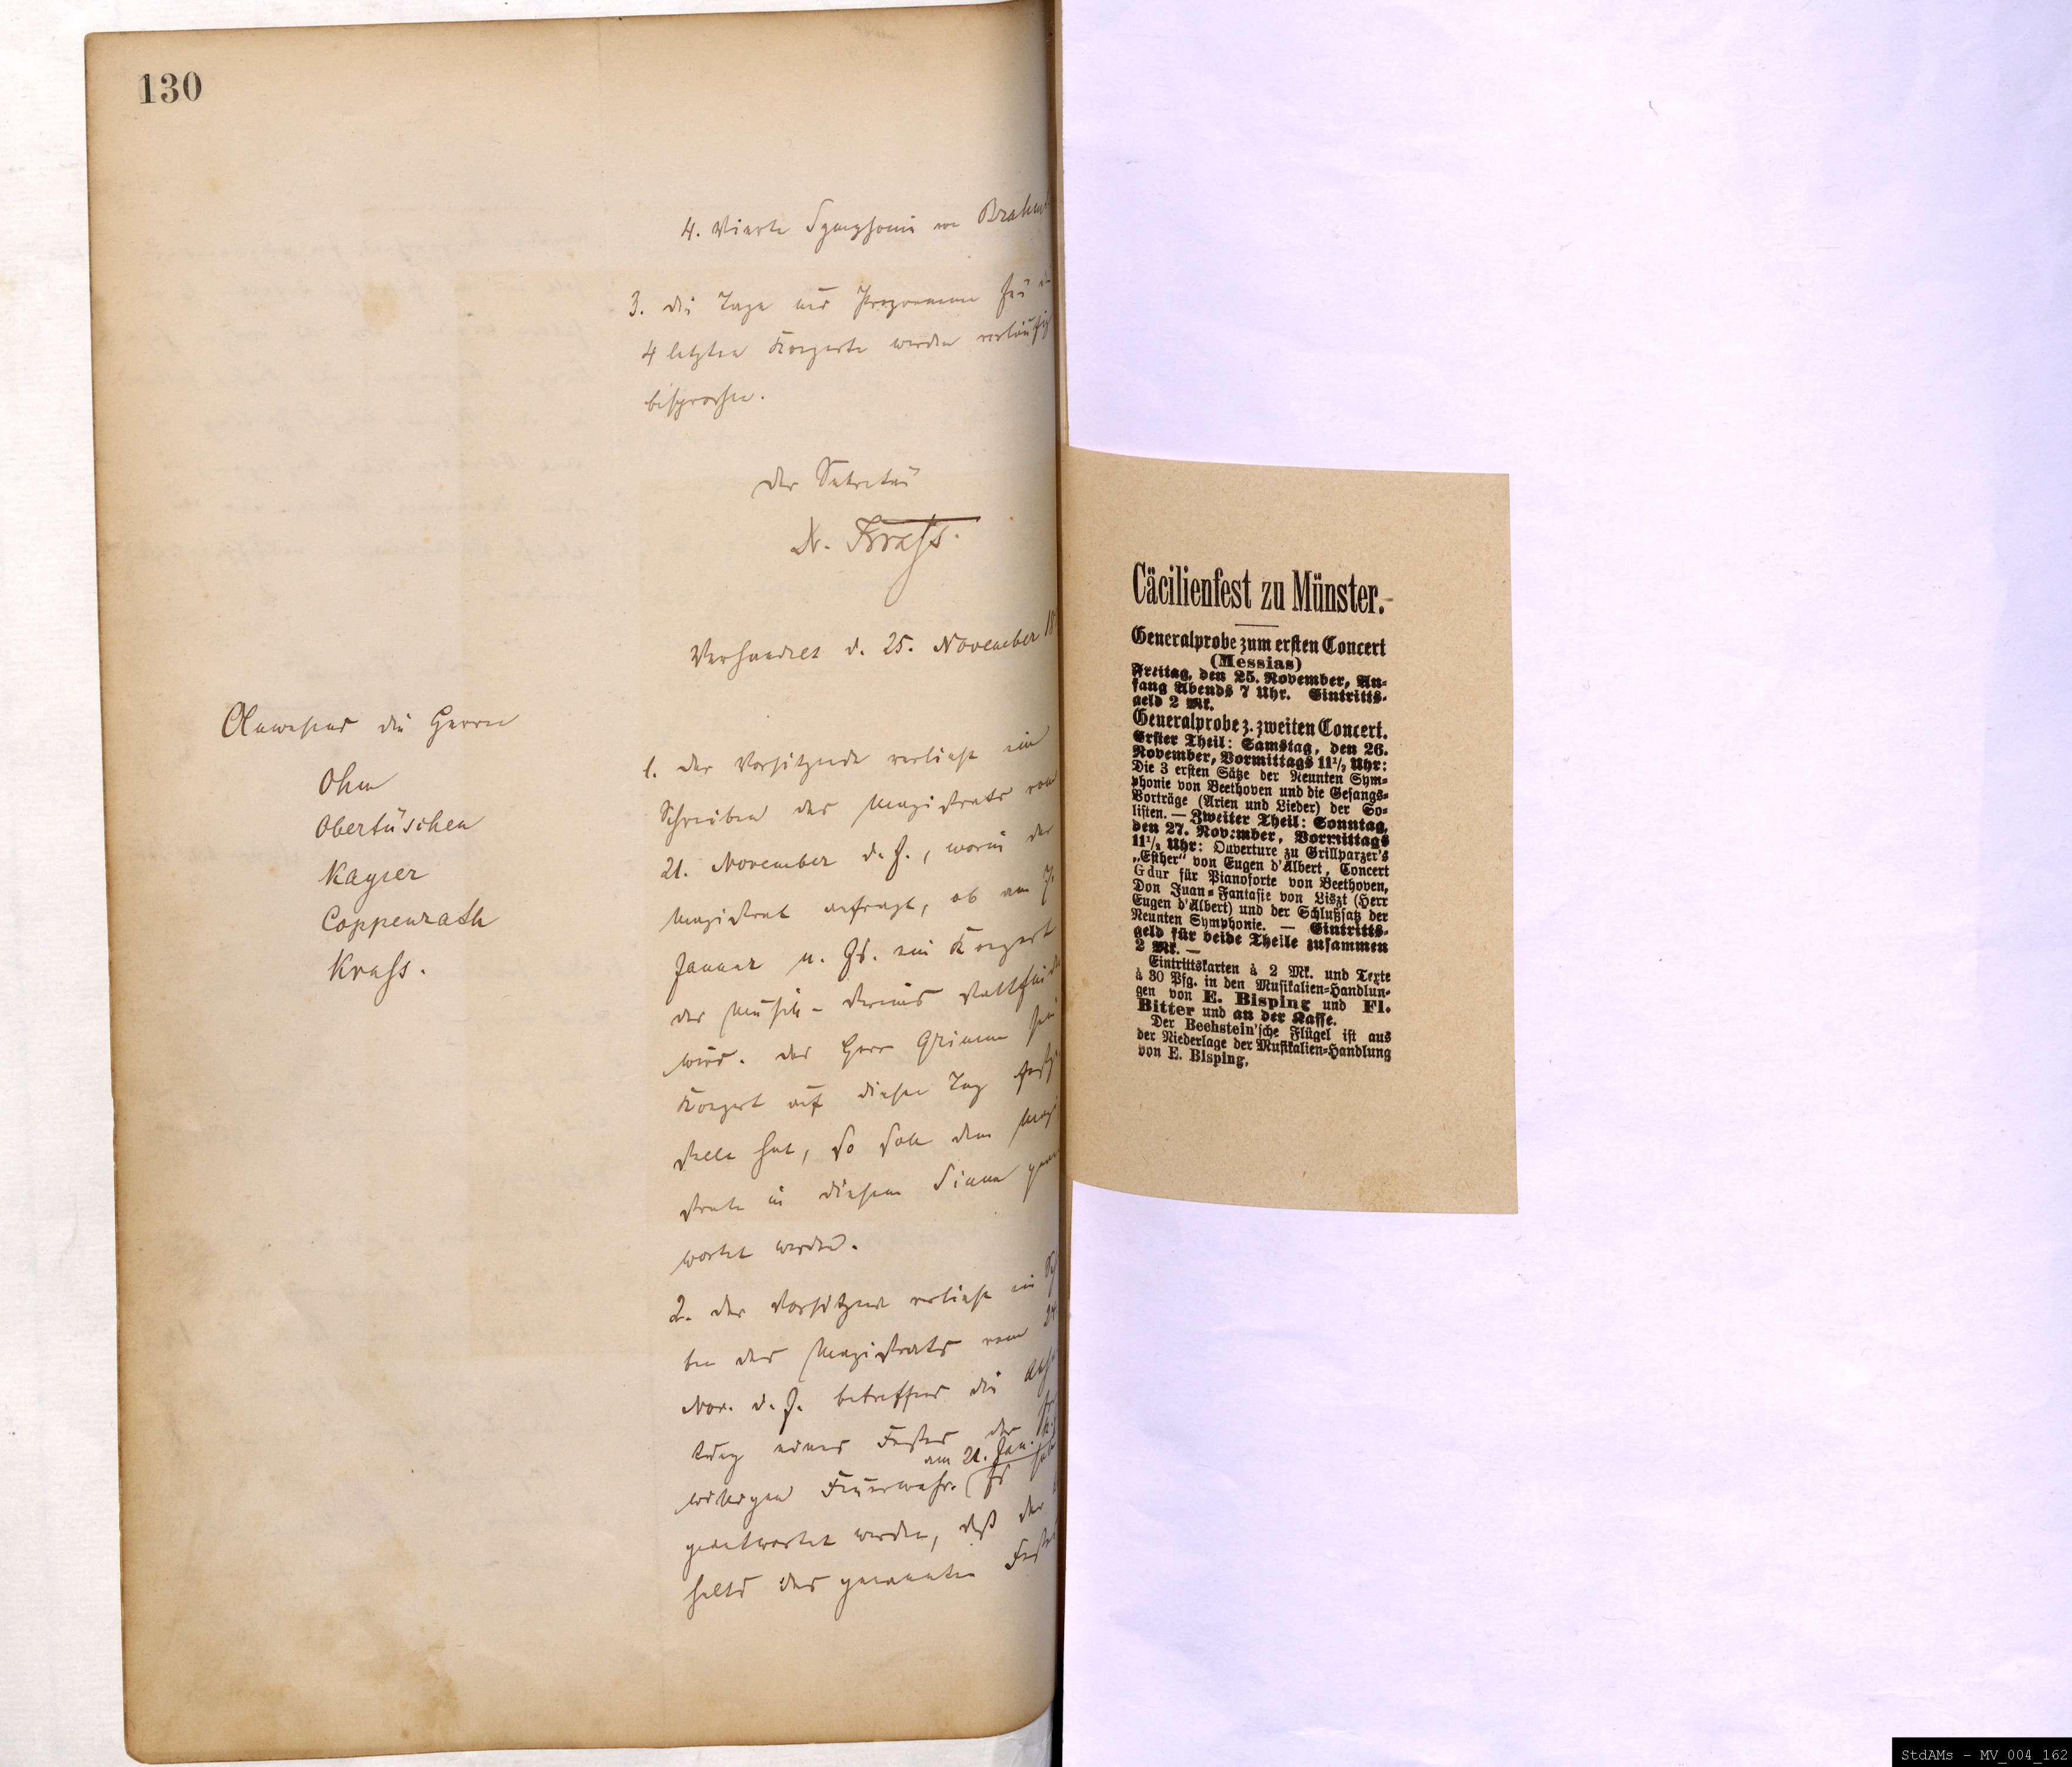 130
4. Vierte Symphonie von Brahms
3. Die Tage und Programme für
4 letzten Konzerte werden vorläufig
besprochen.
Der Sekretär
Dr. Krass.
Verhandelt d. 25. November 18
Anwesend die Herren
Ohm
Obertüschen
Kayser
Coppenrath
Krass.
1. Der Vorsitzende verliest ein
Schreiben des Magistrats vom
21. November d. J., worin der
Magistrat anfragt, ob am 7.
Januar n. Js. ein Konzert
des Musik-Vereins stattfinden
wird. Da Herr Grimm sein
Konzert auf diesen Tag festge
stellt hat, so soll dem Magi
strate in diesem Sinne geant
wortet werden.
2. Der Vorsitzende verliest ein Sch
ben des Magistrats vom
Nov. d. J. betreffend die Abh
tung eines Festes der
am 21. Jan.
willigen Feuerwehr. Es
geantwortet werden, daß der
halts des genannten Festes
Cäcilienfest zu Münster.
Generalprobe zum ersten Concert
(Messias)
Freitag, den 25. November, An-
fang Abends 7 Uhr. Eintritts-
geld 2 Mk.
Generalprobe z. zweiten Concert.
Erster Theil: Samstag, den 26.
November, Vormittags 11½ Uhr:
Die 3 ersten Sätze der Neunten Sym-
phonie von Beethoven und die Gesangs-
Vorträge (Arien und Lieder) der So-
listen. — Zweiter Theil: Sonntag,
den 27. November, Vormittags
11½ Uhr: Ouverture zu Grillparzer's
„Esther“ von Eugen d'Albert, Concert
Gdur für Pianoforte von Beethoven,
Don Juan-Fantasie von Liszt (Herr
Eugen d'Albert) und der Schlußsatz der
Neunten Symphonie. — Eintritts-
geld für beide Theile zusammen
2 Mk. —
Eintrittskarten à 2 Mk. und Texte
à 30 Pfg. in den Musikalien-Handlun-
gen von E. Bisping und Fl.
Bitter und an der Kasse.
Der Bechstein'sche Flügel ist aus
der Niederlage der Musikalien-Handlung
von E. Bisping.
StdAMs - MV_004_162